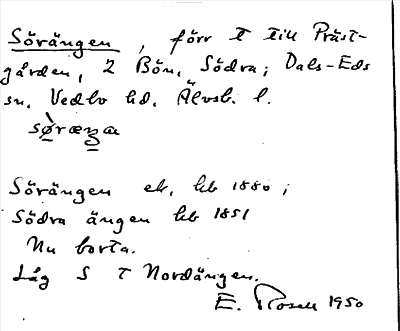 Sörängen, förr t till Präst-
gården, 2 Bön, Södra; Dals-Eds
sn. Vedbo hd. Älvsb. l.
sø̀ræŋa
Sörängen ek, hb 1880;
Södra ängen hb 1851
Nu borta.
Låg S t Nordängen.
E. Rosell 1950